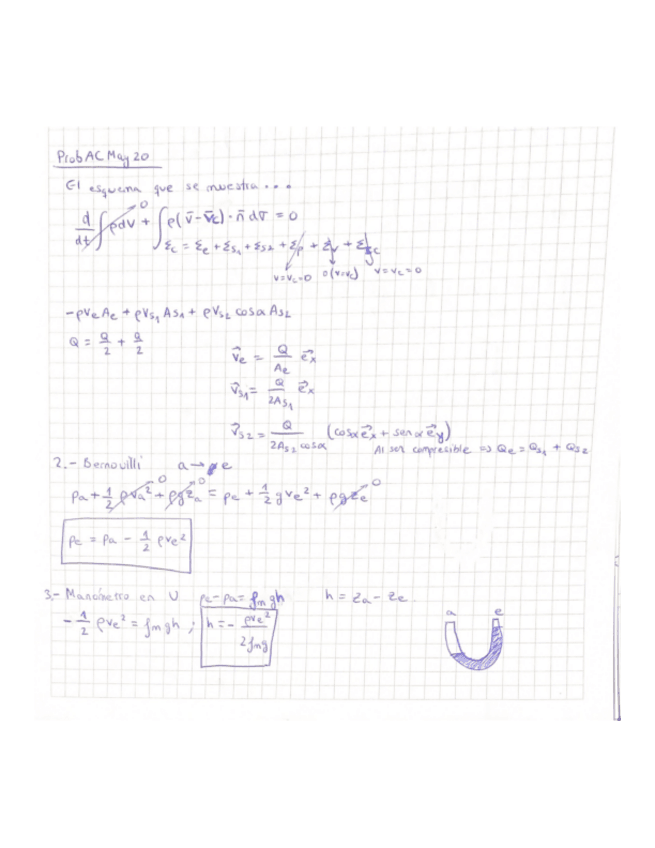 Prob AC May 20
El esquema que se muestra...
d/dt ∫ρdV + ∫ρ(v̄-v̄c)·n̄ dσ = 0
0
Σc = Σe + Σs1 + Σs2 + Σp + Σv + Σsc
v=vc=0 0(v=vc) v=vc=0
-ρveAe + ρvs1 As1 + ρvs2 cosα As2
Q = Q/2 + Q/2
v⃗e = Q/Ae e⃗x
v⃗s1 = Q/2As1 e⃗x
v⃗s2 = Q/2As2 cosα (cosα e⃗x + senα e⃗y)
Al ser compresible => Qe = Qs1 + Qs2
2.- Bernouilli a→e
pa + 1/2 ρva² + ρgza = pe + 1/2 ρve² + ρgze
0 0 0
pe = pa - 1/2 ρve²
3.- Manómetro en U pe-pa = ρm gh h = za - ze
-1/2 ρve² = ρmgh ; h = - ρve²/2ρmg
a e